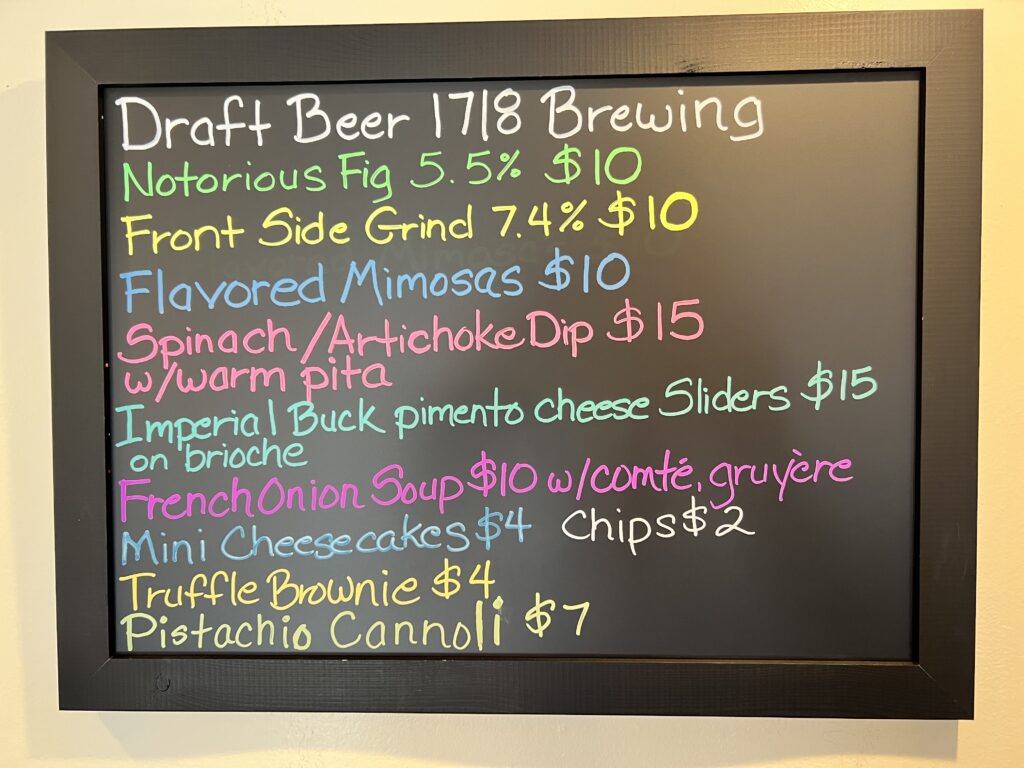 Draft Beer 1718 Brewing
Notorious Fig 5.5% $10
Front Side Grind 7.4% $10
Flavored Mimosas $10
Spinach/Artichoke Dip $15
w/warm pita
Imperial Buck pimento cheese Sliders $15
on brioche
French Onion Soup $10 w/comté, gruyère
Mini Cheesecakes $4 Chips $2
Truffle Brownie $4
Pistachio Cannoli $7